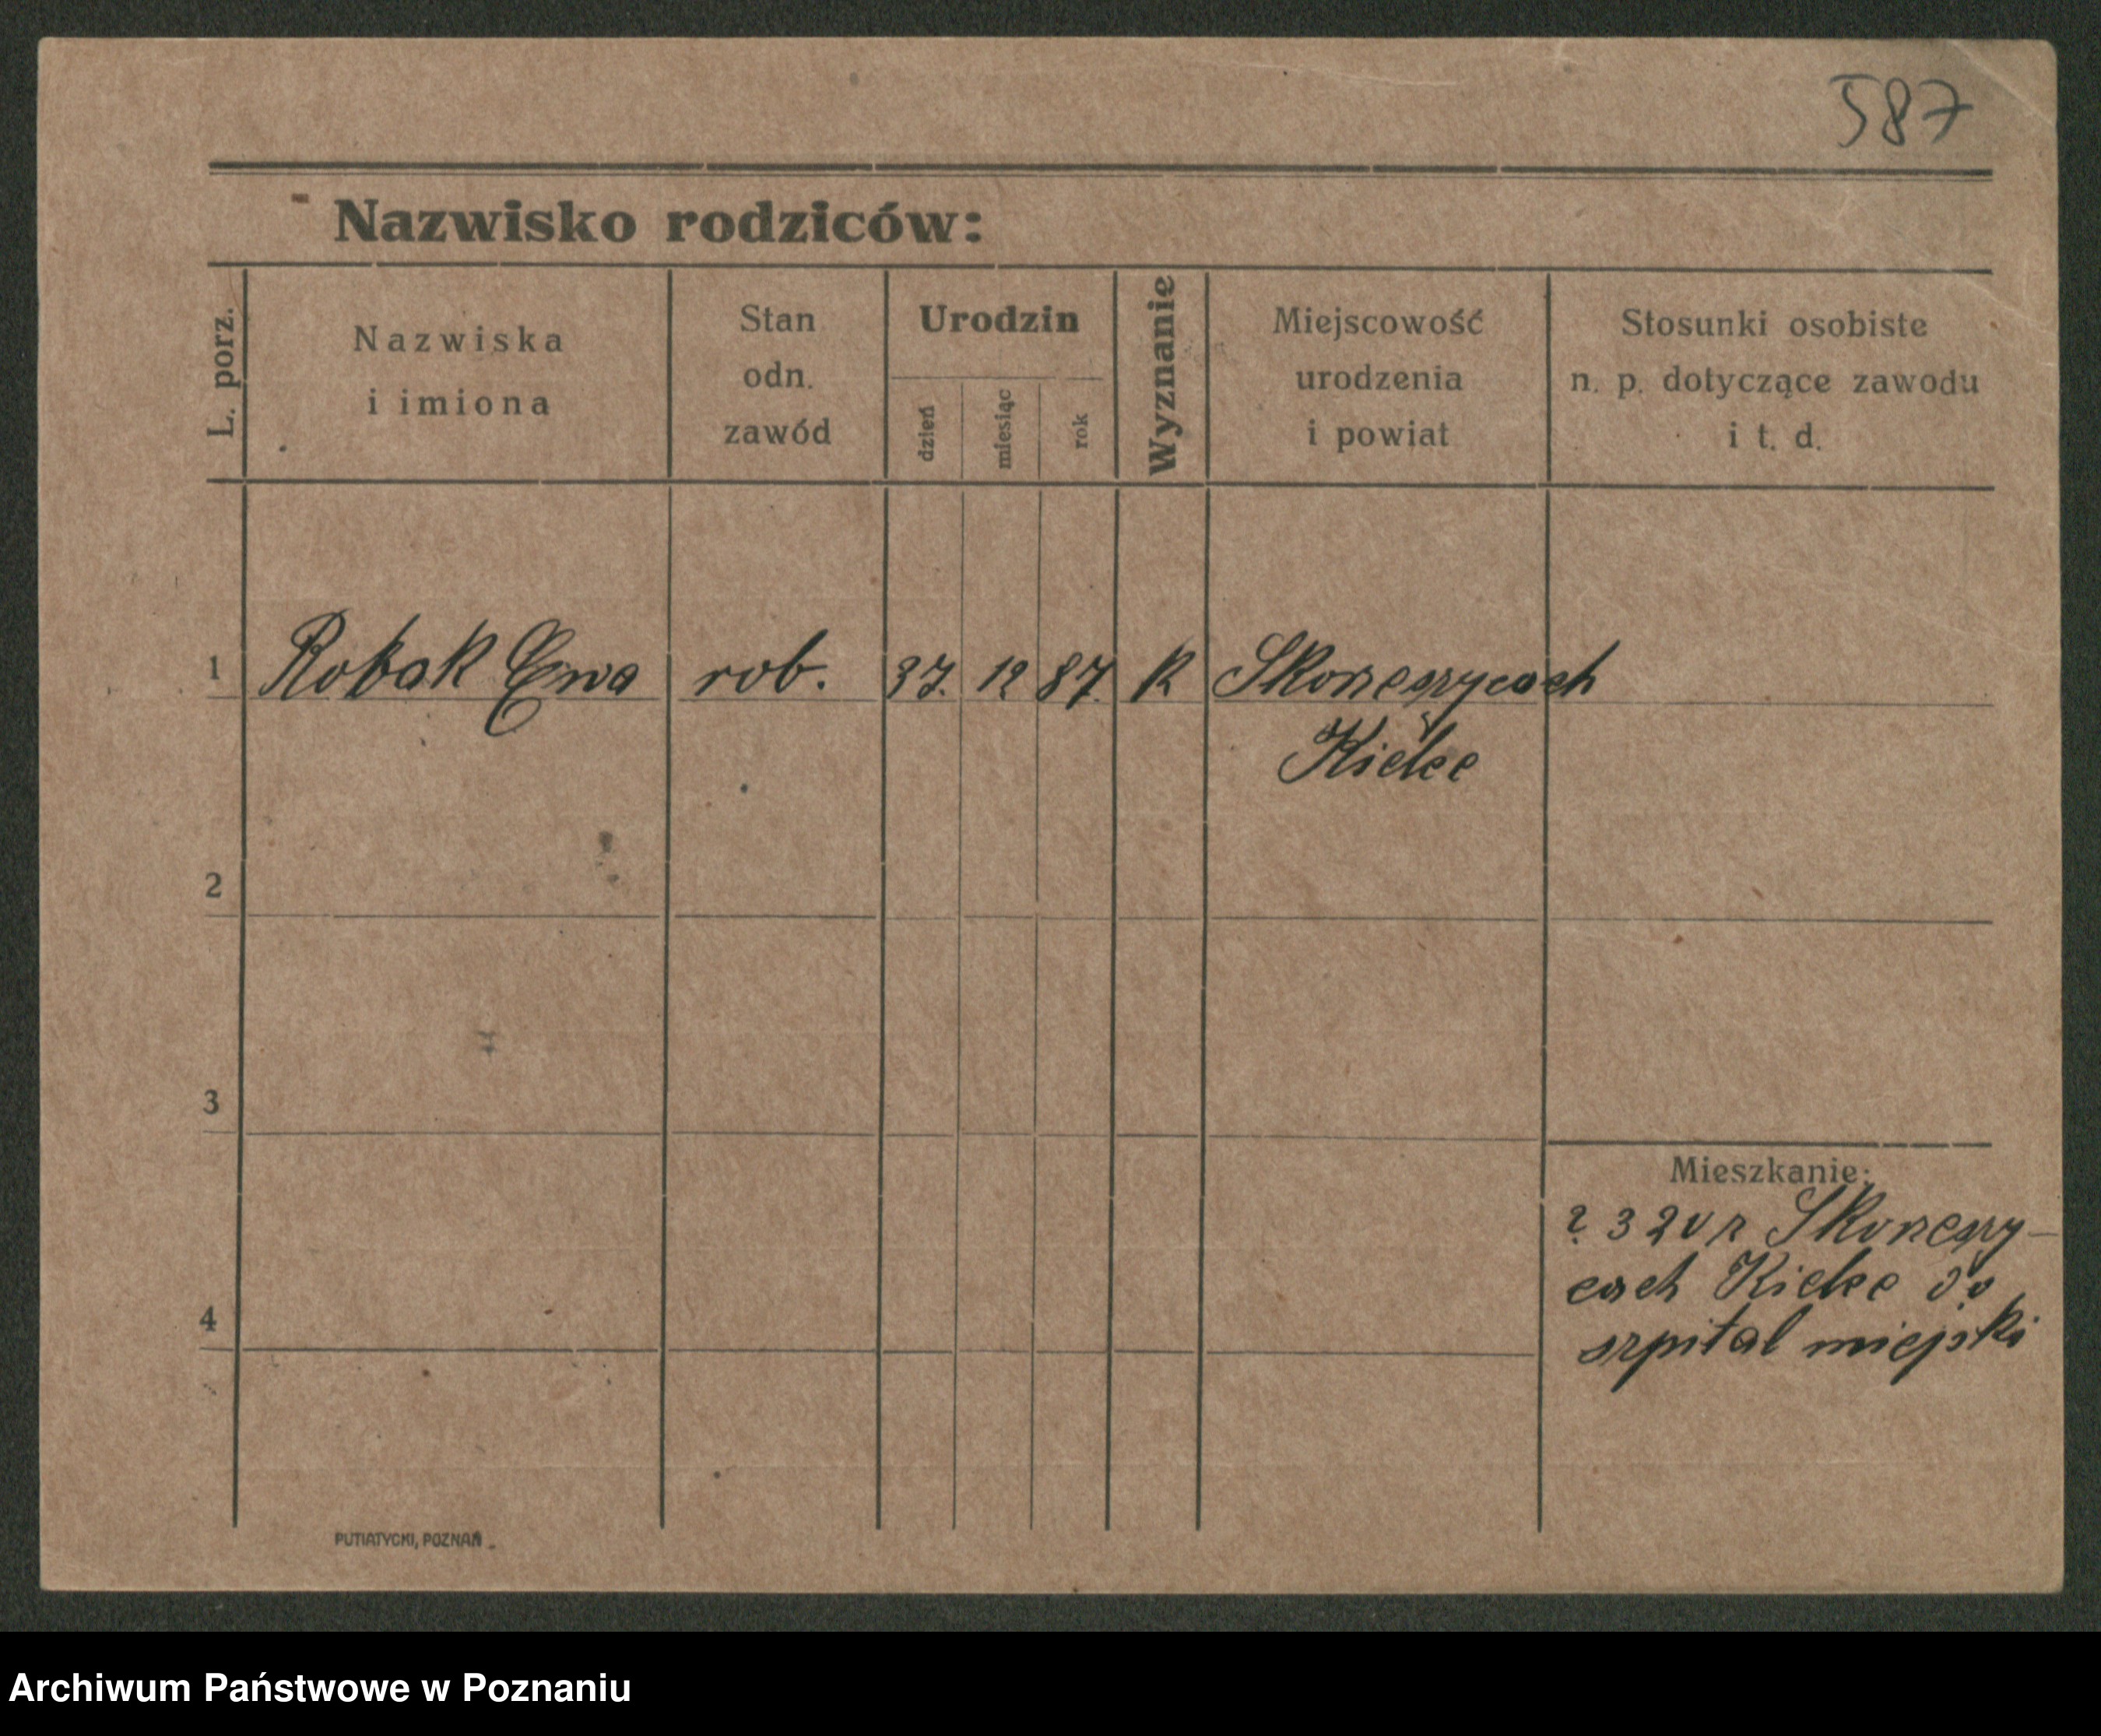 587
Nazwisko rodziców:
L. porz.
Nazwiska
i imiona
Stan
odn.
zawód
Urodzin
dzień
miesiąc
rok
Wyznanie
Miejscowość
urodzenia
i powiat
Stosunki osobiste
n. p. dotyczące zawodu
i t. d.
1 Robak Ewa rob. 12 87. K
Kielce
2
3
Mieszkanie:
Kielce do
szpital miejski
4
PUTIATYCKI, POZNAŃ
Archiwum Państwowe w Poznaniu